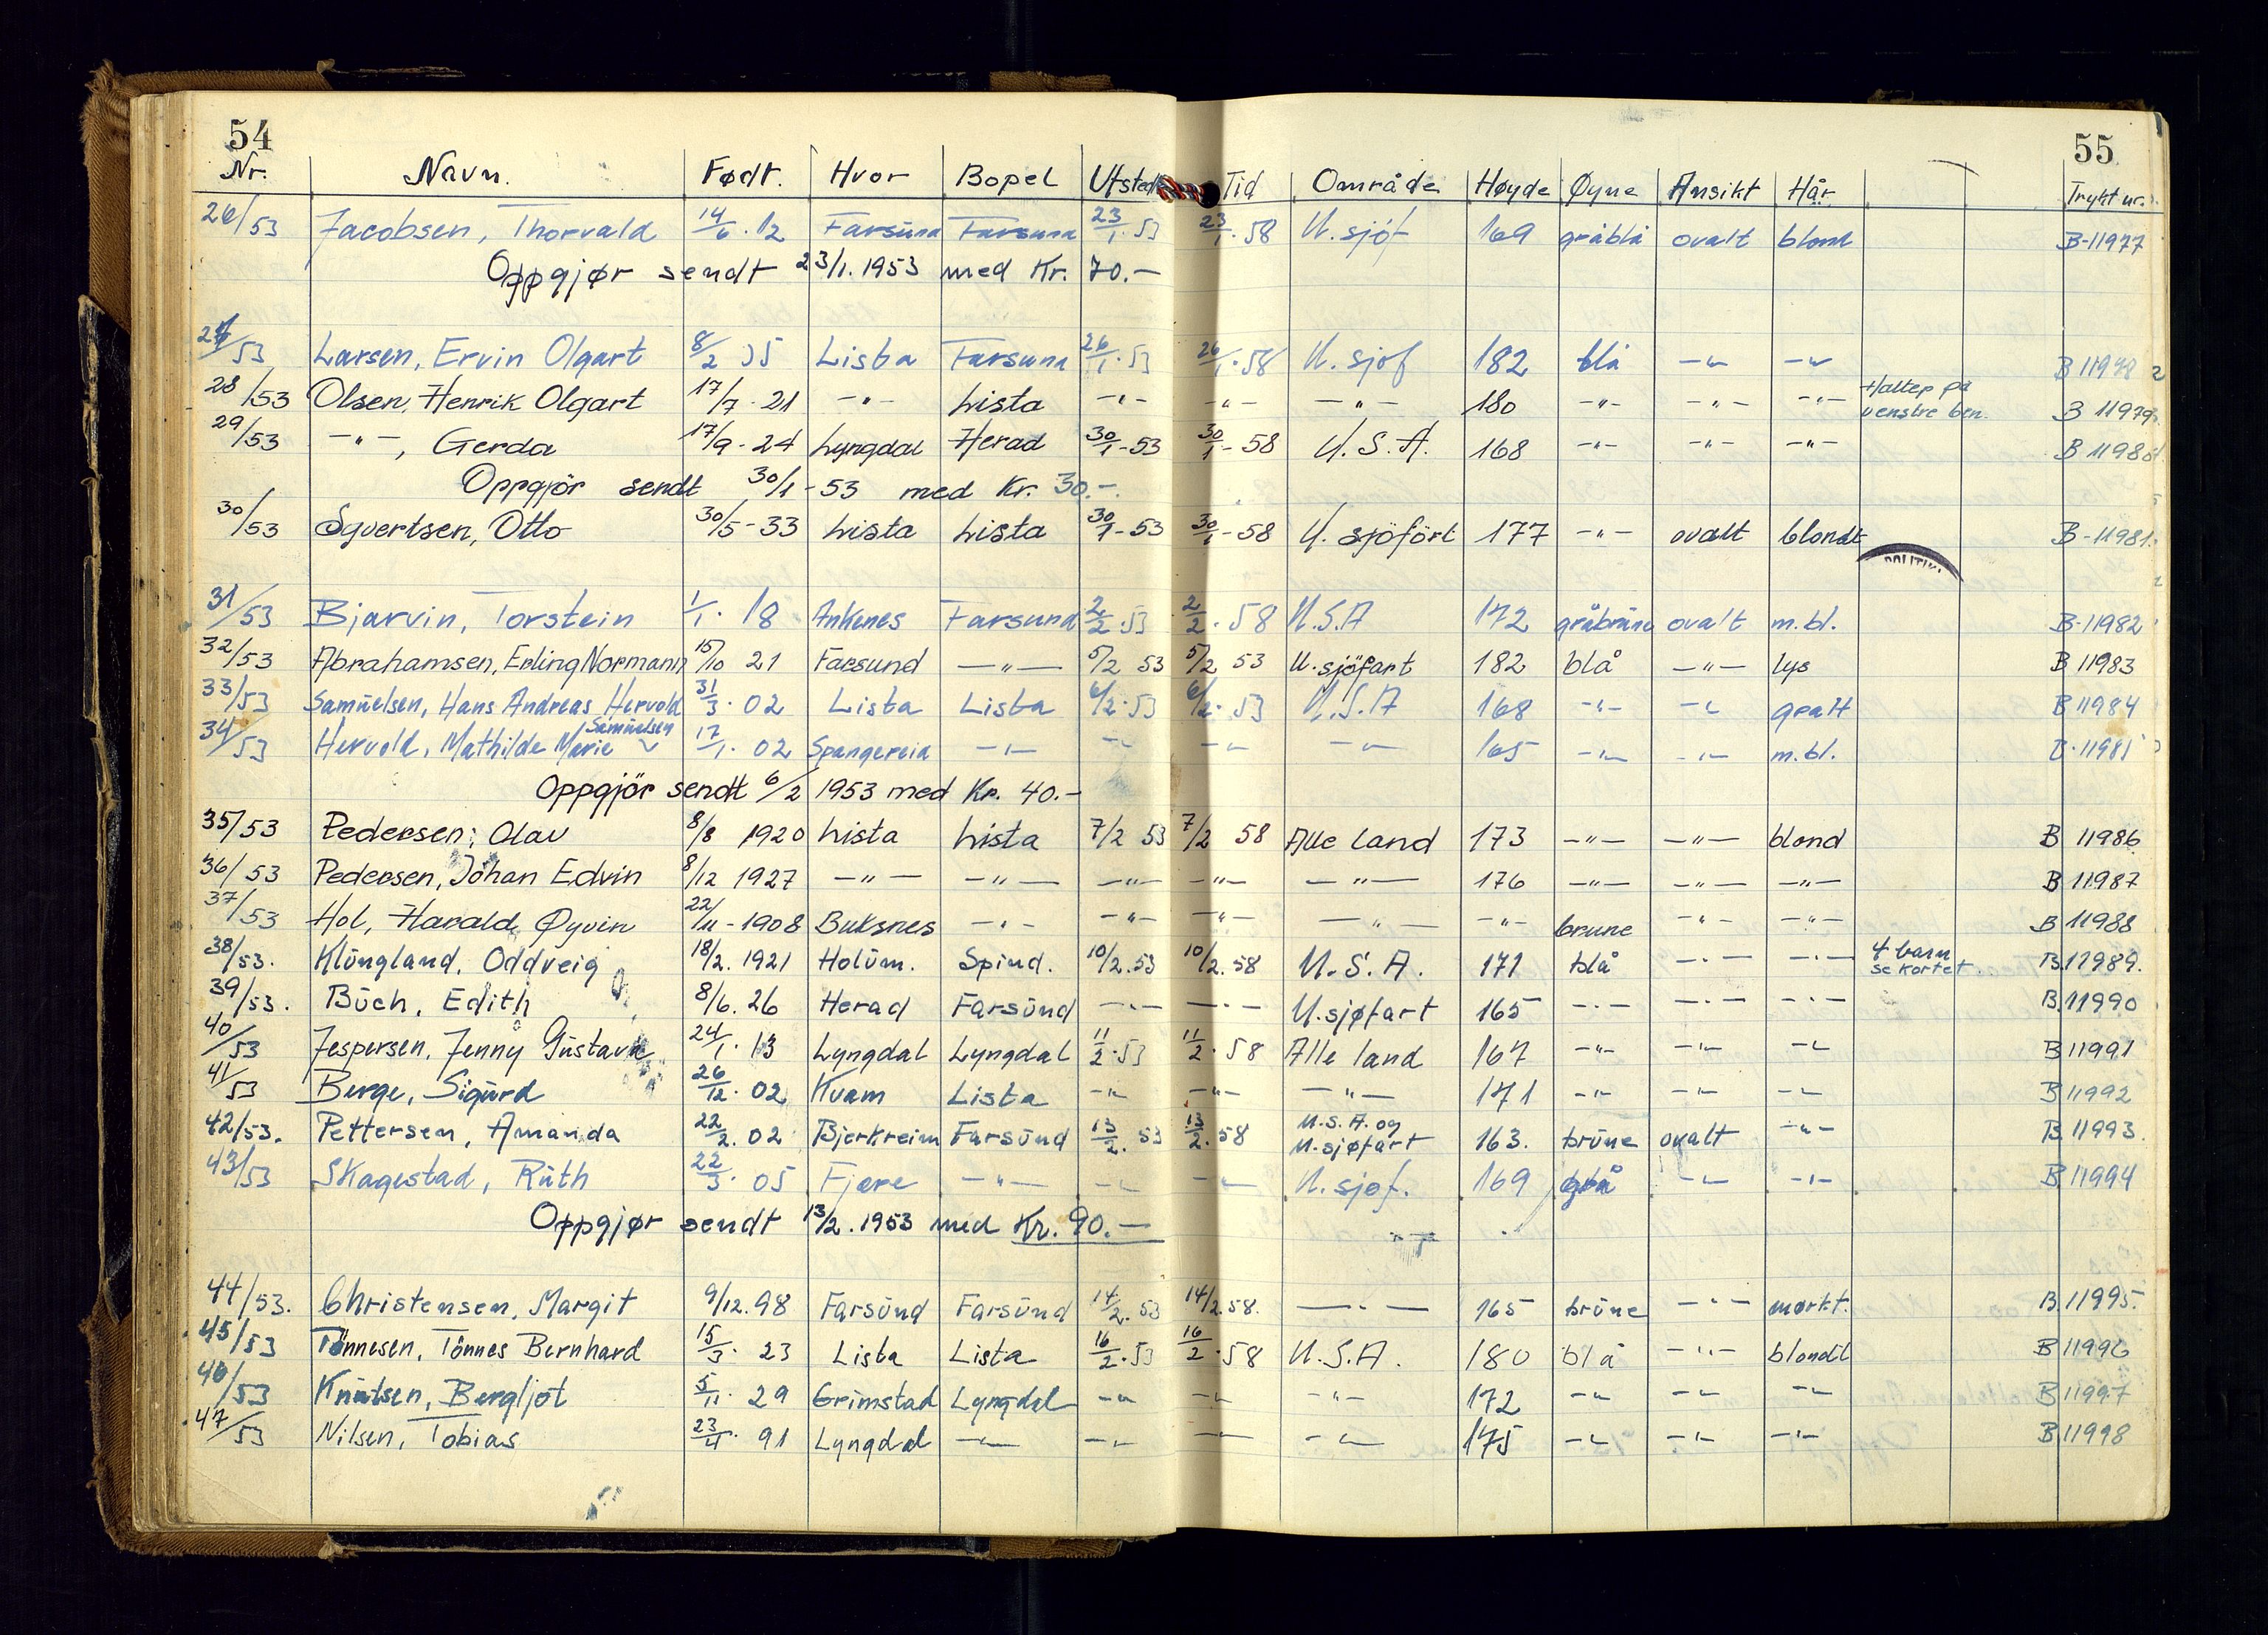 54
55
Nr. Navn. Født. Hvor Bopel Utstedt Tid Område Høyde Øyne Ansikt Hår Trykt nr.
26/53 Jacobsen, Thorvald 14/6. 12 Farsund Farsund 23/1. 53 23/1. 58 U. sjöf 169 gråblå ovalt blond B-11977
Oppgjør sendt 23/1. 1953 med Kr. 70.—
27/53 Larsen, Ervin Olgart 8/2 35 Lista Farsund 26/1. 53 26/1. 58 U. sjöf 182 blå —"— —"— B 11978
28/53 Olsen, Henrik Olgart 17/7. 21 —"— Lista —"— —"— —"— 180 —"— —"— —"— Halter på venstre ben. B 11979
29/53 —"—, Gerda 17/9-24 Lyngdal Herad 30/1-53 30/1-58 U.S.A. 168 —"— —"— —"— B 11980
Oppgjör sendt 30/1-53 med Kr. 30.-.
30/53 Syvertsen, Otto 30/5-33 Lista Lista 30/1-53 30/1-58 U. sjöfört 177 —"— ovalt blondt B-11981.
31/53 Bjarvin, Torstein 1/1. 18 Ankenes Farsund 2/2. 53 2/2. 58 U.S.A 172 gråbrune ovalt m.bl. B-11982
32/53 Abrahamsen, Erling Normann 15/10 21 Farsund —"— 5/2 53 5/2 53 U.sjöfart 182 blå —"— lys B 11983
33/53 Samüelsen, Hans Andreas Hervold 31/3. 02 Lista Lista 6/2. 53 6/2. 53 U.S.A 168 —"— —"— grått B 11984
34/53 Hervold, Mathilde Marie Samüelsen 17/1. 02 Spangereid —"— —"— —"— —"— 165 —"— —"— m.bl. B-11985
Oppgjör sendt 6/2 1953 med Kr. 40.-
35/53 Pedersen, Olav 8/8 1920 Lista Lista 7/2 53 7/2 58 Alle land 173 —"— —"— blond B 11986
36/53 Pedersen, Johan Edvin 8/12 1927 —"— —"— —"— —"— —"— 176 —"— —"— —"— B 11987
37/53 Hol, Harald Øyvin 22/11-1908 Buksnes —"— —"— —"— —"— —"— brune —"— —"— B 11988
38/53. Klüngland, Oddveig 18/2. 1921 Holüm. Spind. 10/2. 53 10/2. 58 U.S.A. 171 blå —"— —"— 4 barn se kortet. B.11989.
39/53. Büch, Edith 8/6. 26 Herad Farsünd —"— —"— U.sjøfart 165 —"— —"— —"— B.11990
40/53 Jespersen, Jenny Güstava 24/1. 13 Lyngdal Lyngdal 11/2. 53 11/2. 58 Alle land 167 —"— —"— —"— B 11991
41/53 Berge, Sigürd 26/12. 02 Kvam Lista —"— —"— —"— 171 —"— —"— —"— B 11992
42/53. Pettersen, Amanda 22/2. 02 Bjerkreim Farsünd 13/2. 53 13/2. 58 U.S.A. og U.sjøfart 163. brüne ovalt —"— B.11993.
43/53 Skagestad, Rüth 22/3. 05 Fjære —"— —"— —"— U.sjøf. 169 —"— —"— B 11994
Oppgjør sendt 13/2. 1953 med Kr. 90.—
44/53. Christensen, Margit 9/12. 98 Farsünd Farsünd 14/2. 53 14/2. 58. —"— 165 brüne —"— mørkt. B.11995.
45/53 Tönnesen, Tönnes Bernhard 15/3. 23 Lista Lista 16/2. 53 16/2. 58 U.S.A. 180 blå —"— blondt B 11996
46/53 Knütsen, Bergljot 5/11. 29 Grimstad Lyngdal —"— —"— —"— 172 —"— —"— —"— B 11997
47/53 Nilsen, Tobias 23/4. 91 Lyngdal —"— —"— —"— —"— 175 —"— —"— —"— B 11998